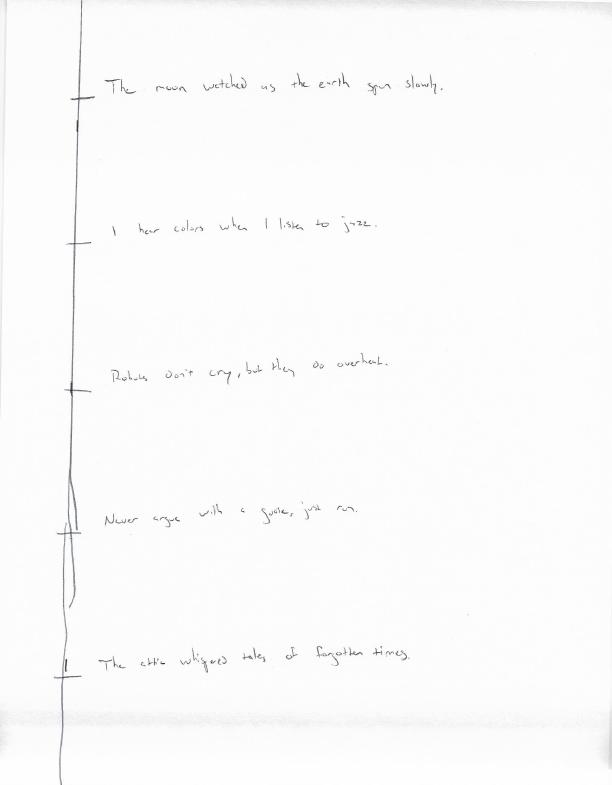 The moon watched as the earth spun slowly.
I hear colors when I listen to jazz.
Robots don't cry, but they do overheat.
Never argue with a goose, just run.
The attic whispered tales of forgotten times.